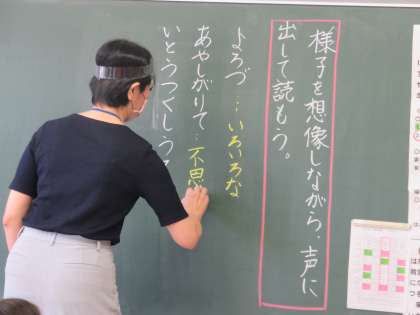 様子を想像しながら、声に
出して読もう。
よろづ…いろいろな
あやしがりて…不思
いとうつくしう